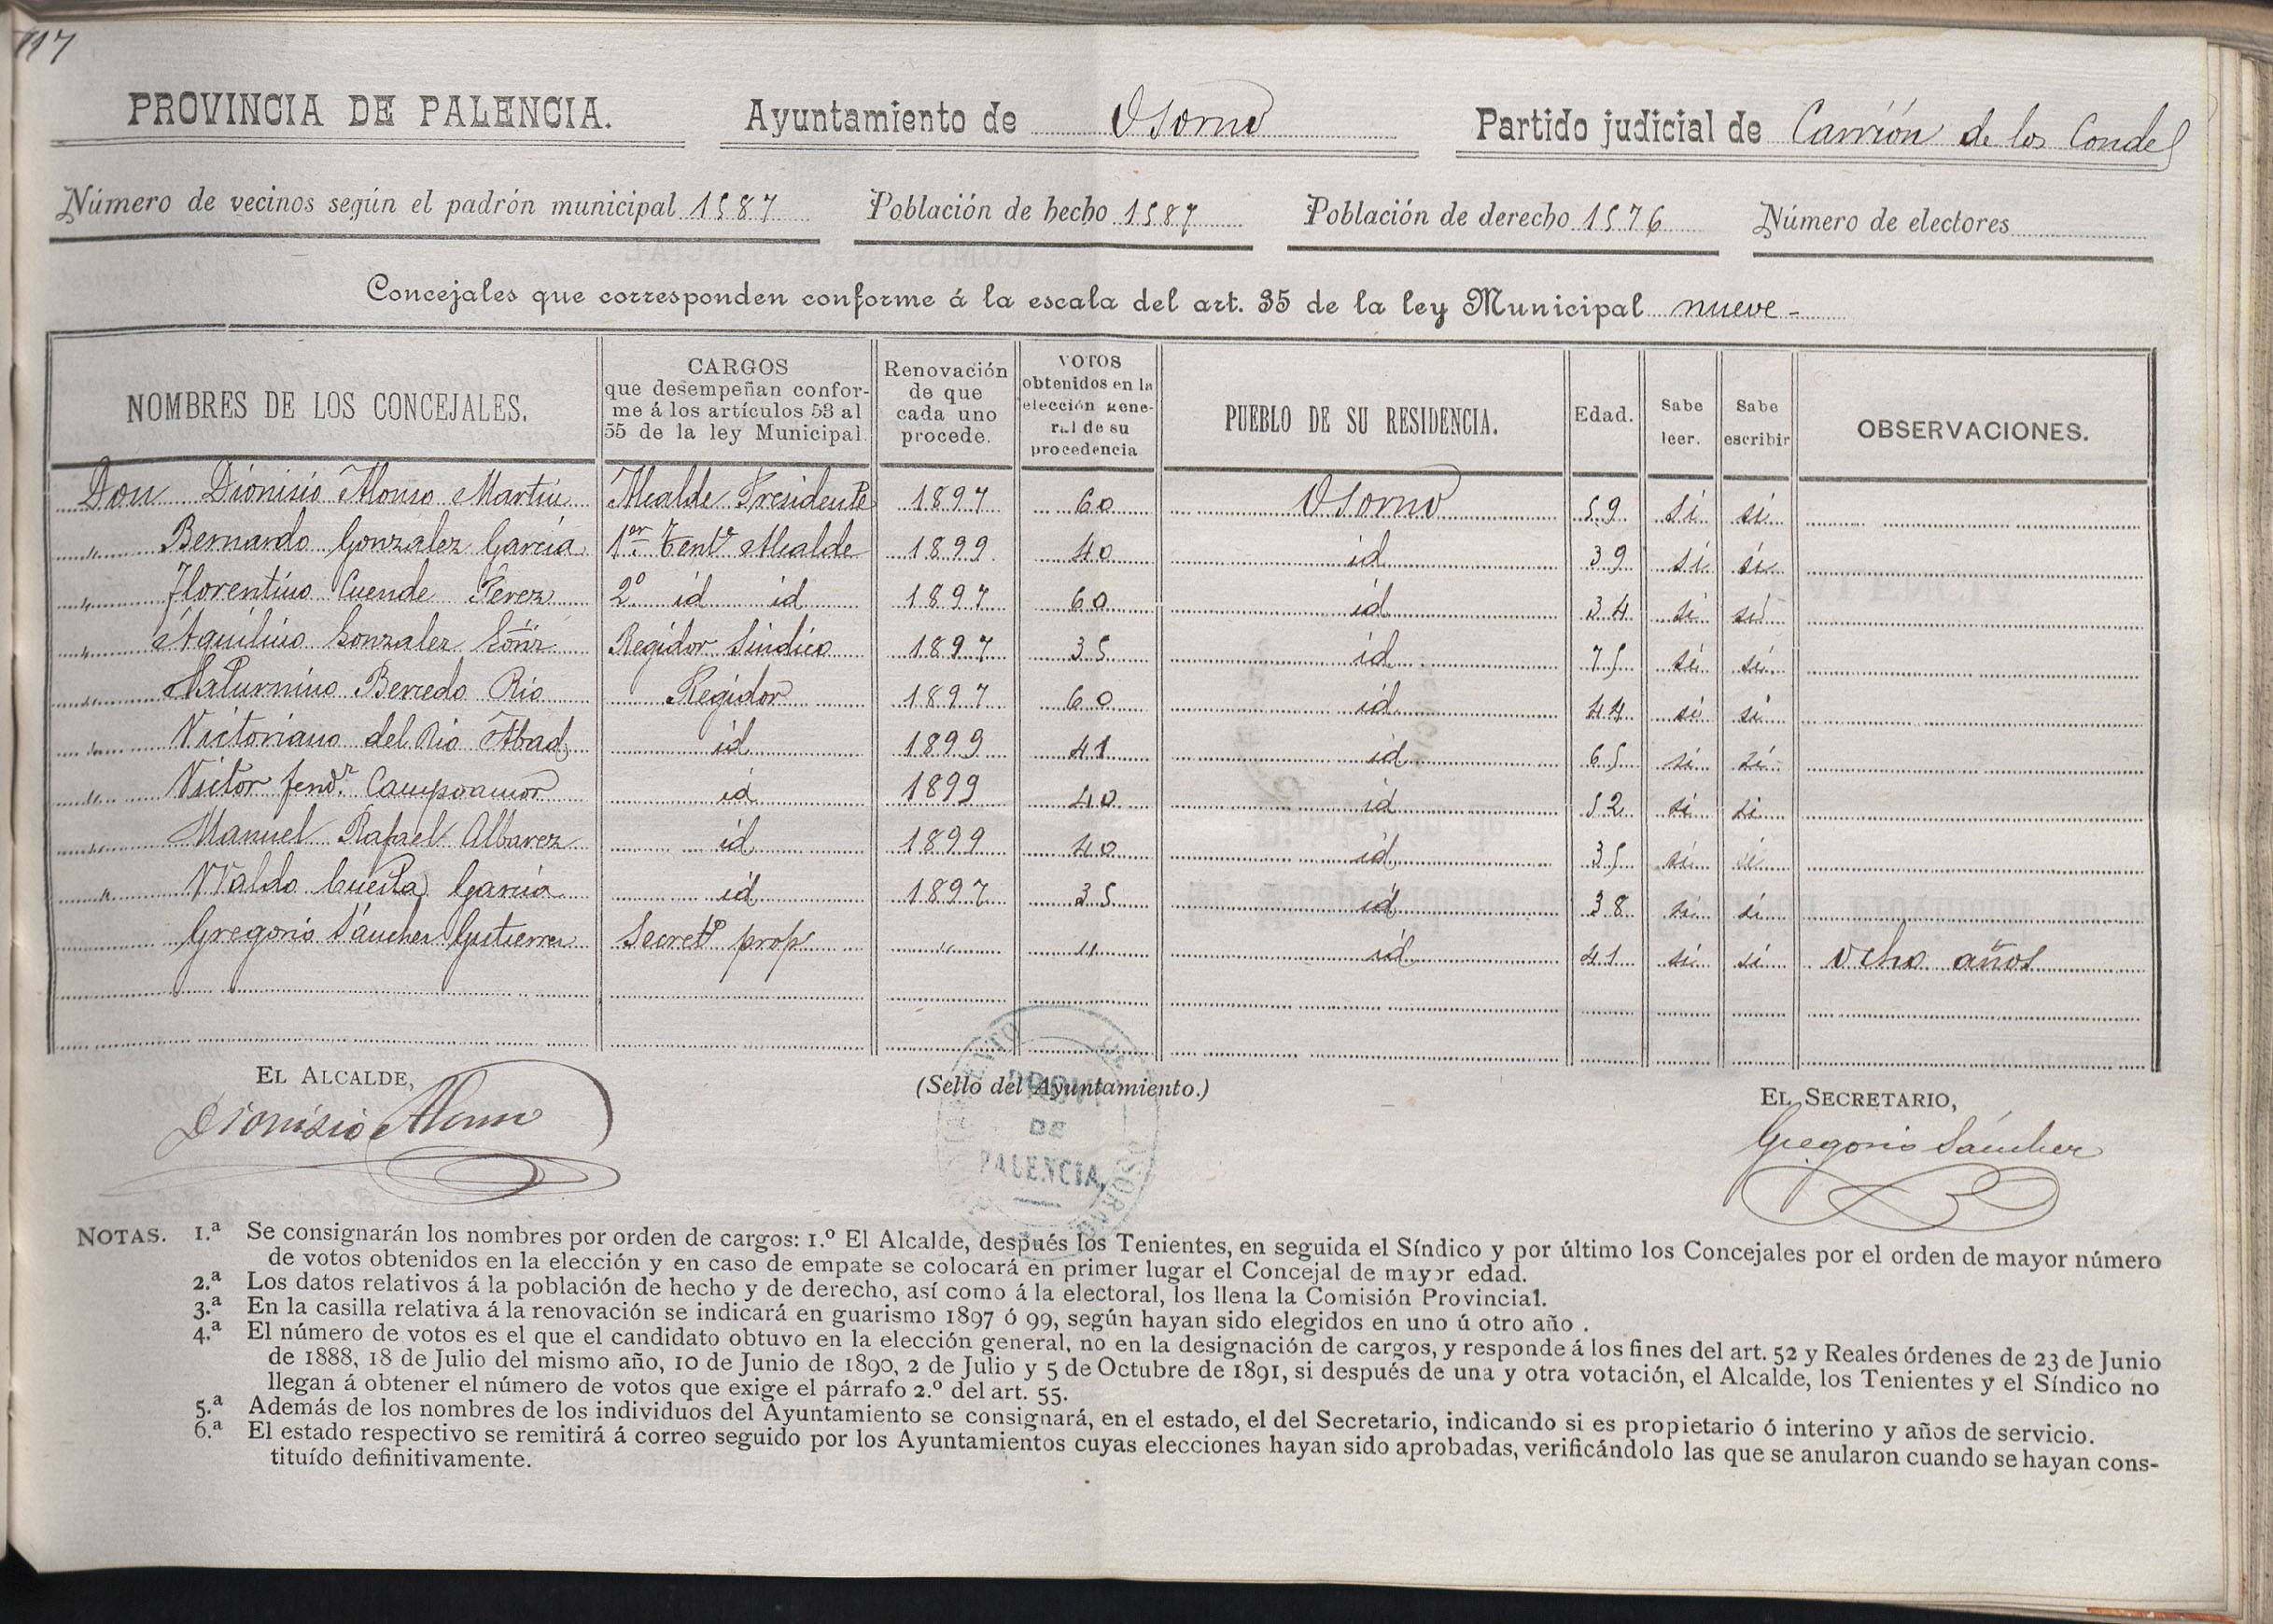 117
PROVINCIA DE PALENCIA. Ayuntamiento de Osorno Partido judicial de Carrión de los Condes
Número de vecinos según el padrón municipal 1587 Población de hecho 1587 Población de derecho 1576 Número de electores
Concejales que corresponden conforme á la escala del art. 35 de la ley Municipal nueve -
NOMBRES DE LOS CONCEJALES. CARGOS que desempeñan conforme á los artículos 53 al 55 de la ley Municipal. Renovación de que cada uno procede. VOTOS obtenidos en la elección general de su procedencia PUEBLO DE SU RESIDENCIA. Edad. Sabe leer. Sabe escribir OBSERVACIONES.
Don Dionisio Alonso Martin Alcalde Presidente 1897 60 Osorno 59 si si
" Bernardo Gonzalez Garcia 1er Tente Alcalde 1899 40 id 39 si si
" Florentino Cuende Perez 2º id id 1897 60 id 34 si si
" Aquilino Gonzalez Regidor Sindico 1897 35 id 75 si si
" Saturnino Berzedo Rio Regidor 1897 60 id 44 si si
" Victoriano del Rio Abad id 1899 41 id 65 si si
" Victor fendz Campoamor id 1899 40 id 52 si si
" Manuel Rafael Albarez id 1899 40 id 35 si si
" Waldo Cuesta Garcia id 1897 35 id 38 si si
Gregorio Sánchez Gutierrez Secretº prop " " id 41 si si ocho años
EL ALCALDE, (Sello del Ayuntamiento.) EL SECRETARIO,
Dionisio Alonso Gregorio Sánchez
PROVA DE PALENCIA OSORNO
NOTAS. 1.ª Se consignarán los nombres por orden de cargos: 1.º El Alcalde, después los Tenientes, en seguida el Síndico y por último los Concejales por el orden de mayor número
de votos obtenidos en la elección y en caso de empate se colocará en primer lugar el Concejal de mayor edad.
2.ª Los datos relativos á la población de hecho y de derecho, así como á la electoral, los llena la Comisión Provincial.
3.ª En la casilla relativa á la renovación se indicará en guarismo 1897 ó 99, según hayan sido elegidos en uno ú otro año .
4.ª El número de votos es el que el candidato obtuvo en la elección general, no en la designación de cargos, y responde á los fines del art. 52 y Reales órdenes de 23 de Junio
de 1888, 18 de Julio del mismo año, 10 de Junio de 1890, 2 de Julio y 5 de Octubre de 1891, si después de una y otra votación, el Alcalde, los Tenientes y el Síndico no
llegan á obtener el número de votos que exige el párrafo 2.º del art. 55.
5.ª Además de los nombres de los individuos del Ayuntamiento se consignará, en el estado, el del Secretario, indicando si es propietario ó interino y años de servicio.
6.ª El estado respectivo se remitirá á correo seguido por los Ayuntamientos cuyas elecciones hayan sido aprobadas, verificándolo las que se anularon cuando se hayan cons-
tituído definitivamente.